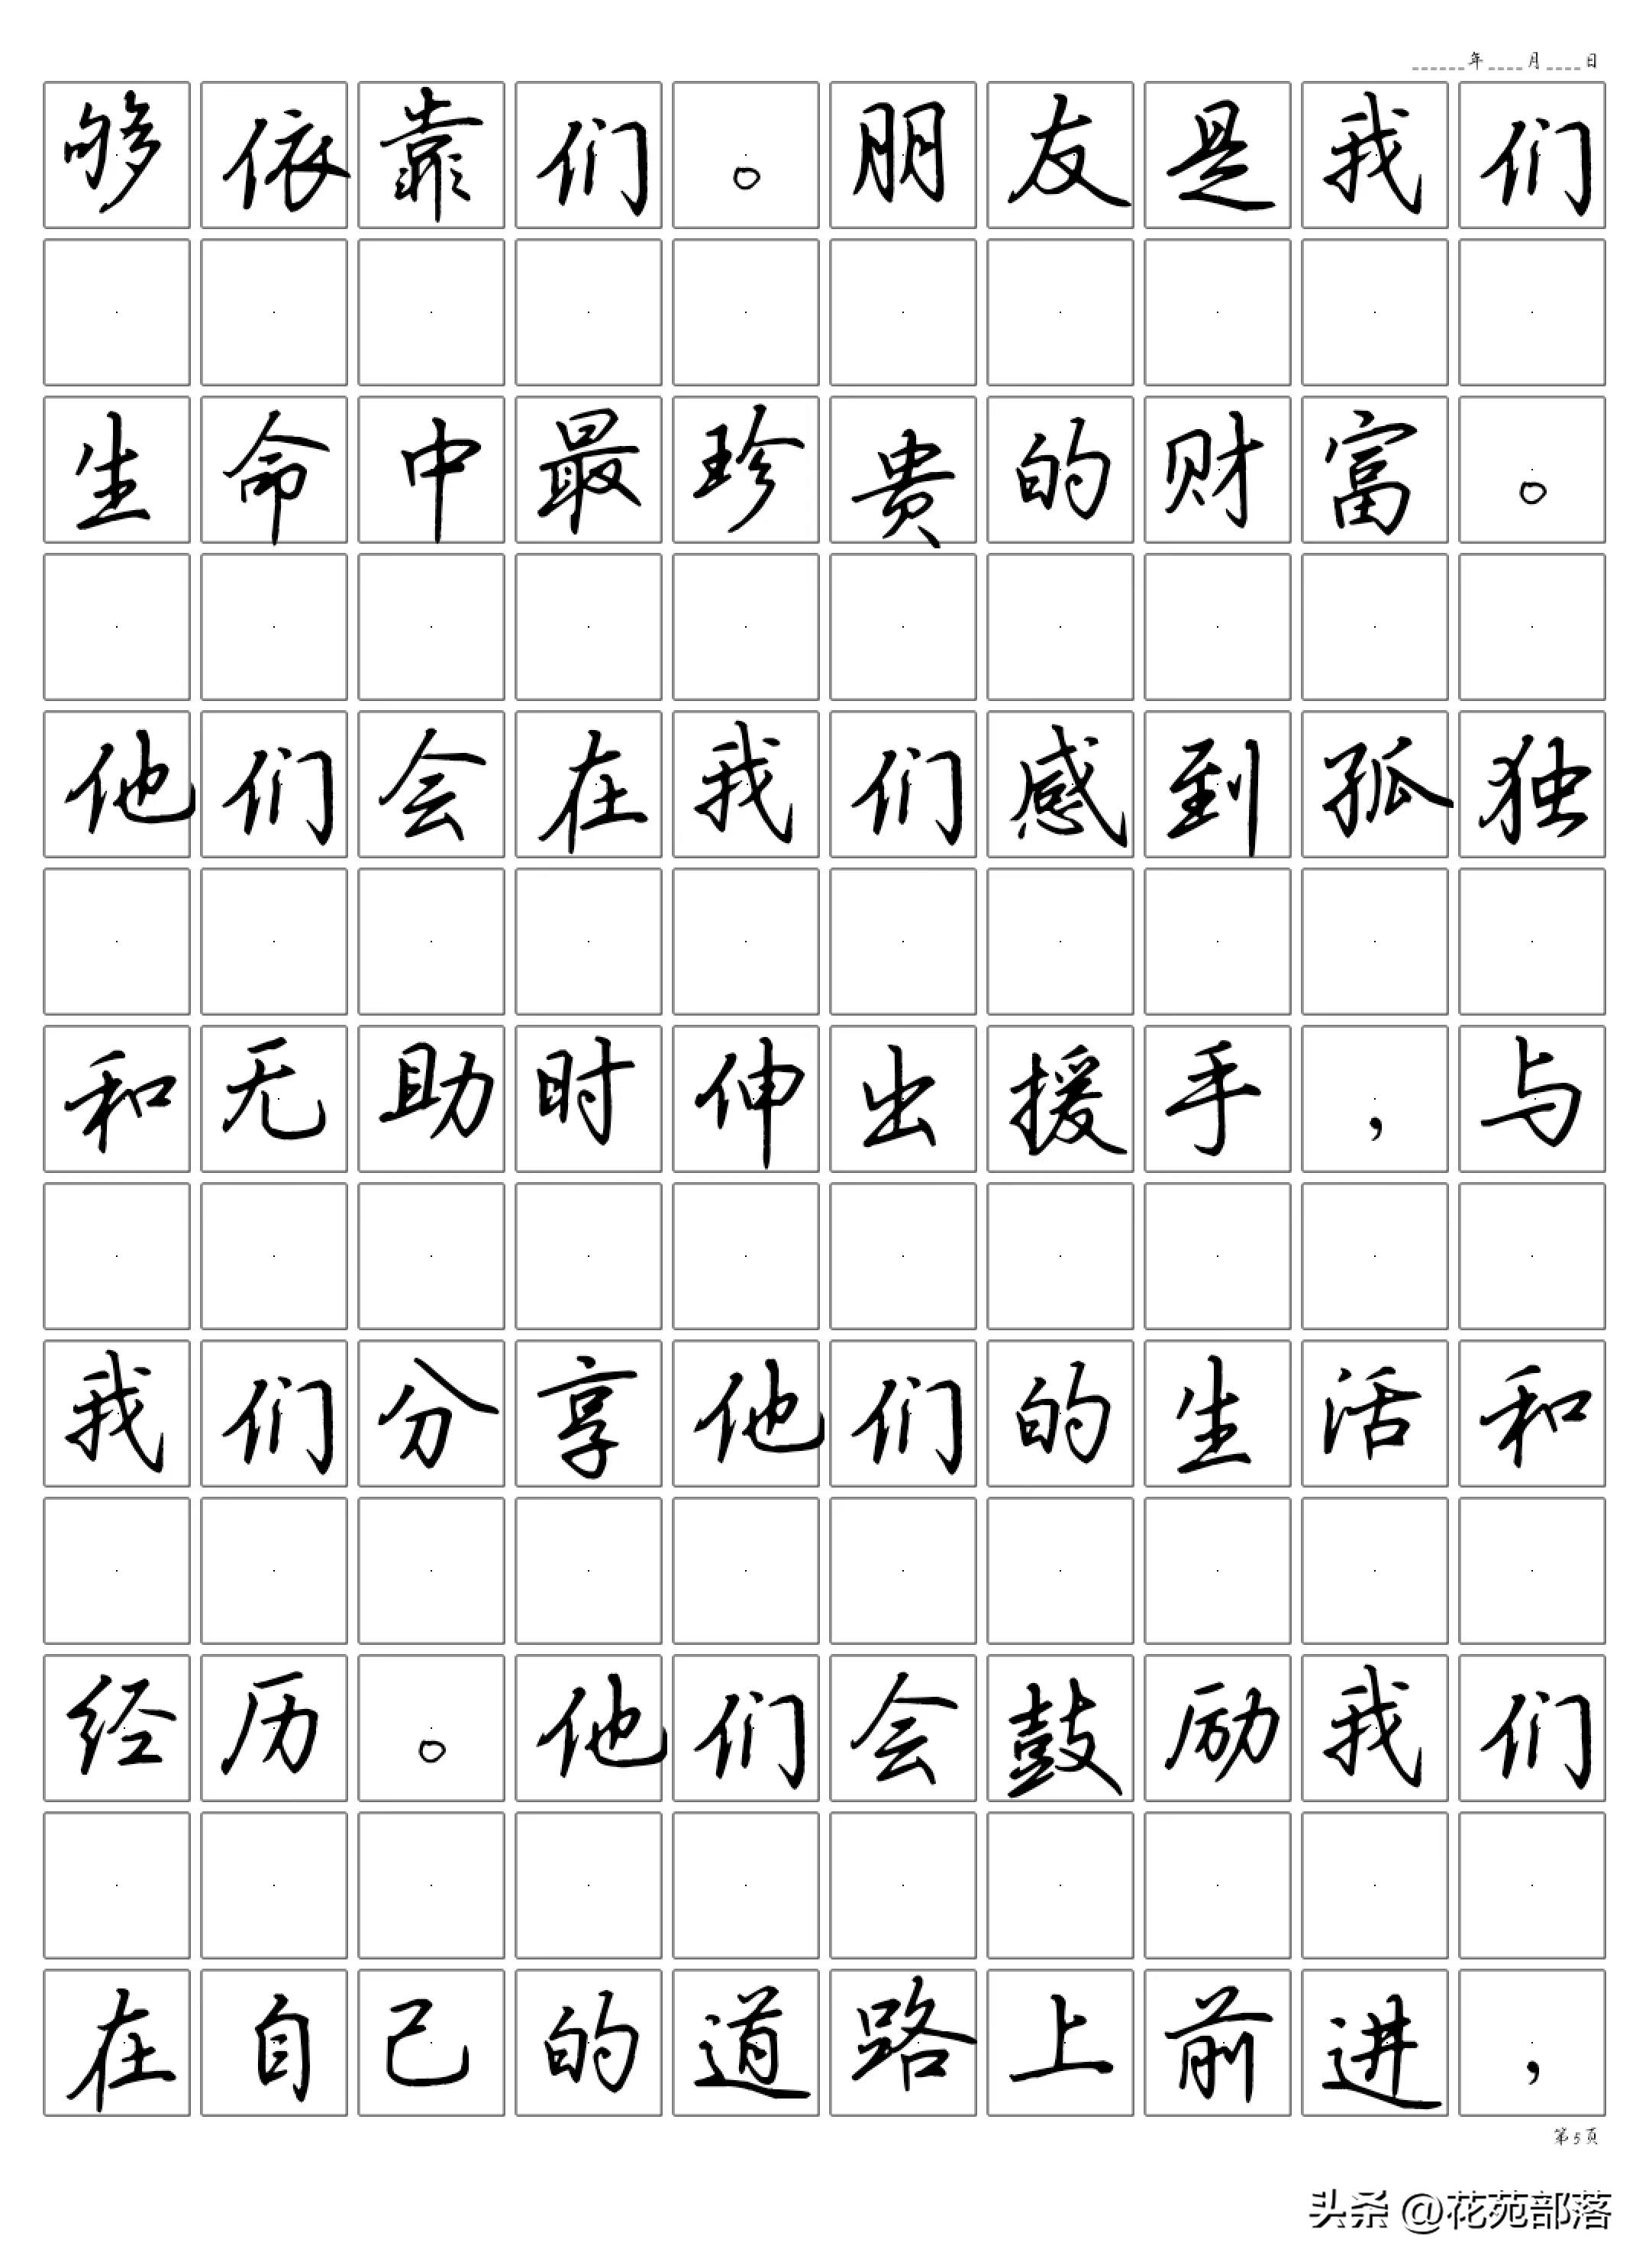 年 月 日
够依靠们。朋友是我们
生命中最珍贵的财富。
他们会在我们感到孤独
和无助时伸出援手，与
我们分享他们的生活和
经历。他们会鼓励我们
在自己的道路上前进，
第5页
头条 @花苑部落